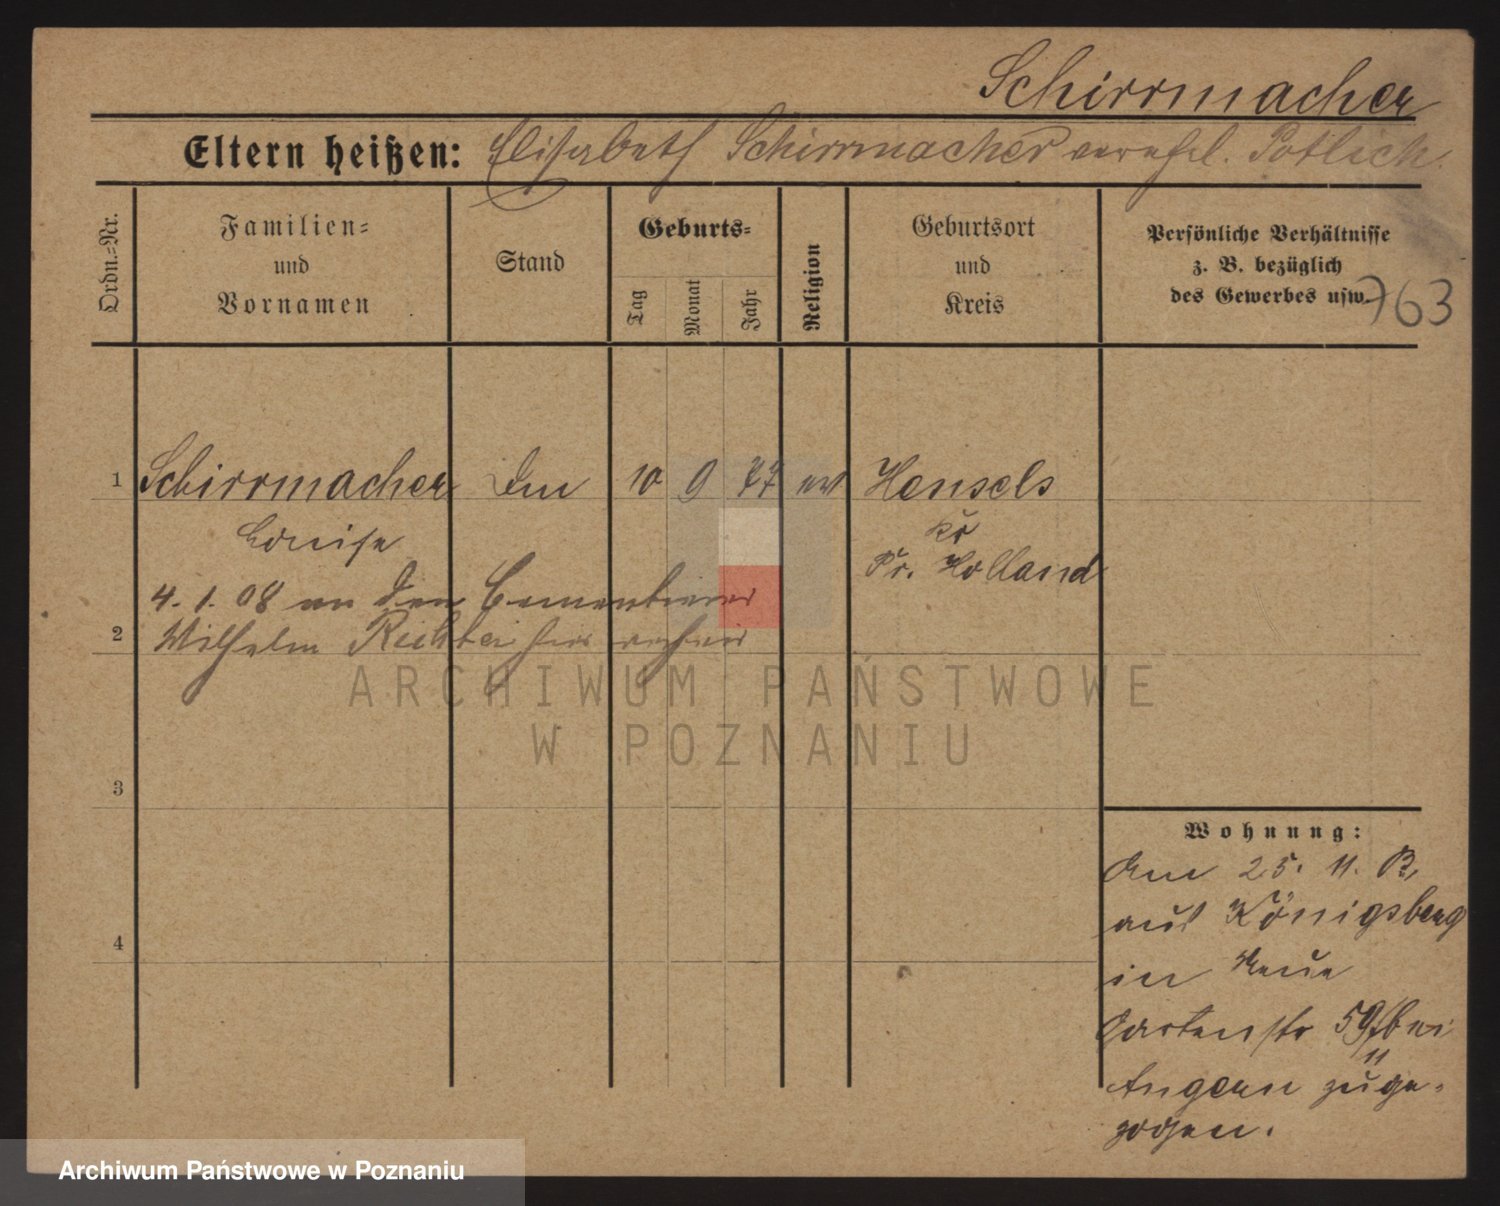 Schirrmacher
Eltern heißen: Elisabeth Schirrmacher verehel. Potlich.
Ordn.=Nr.
Familien=
und
Vornamen
Stand
Geburts=
Tag
Monat
Jahr
Religion
Geburtsort
und
Kreis
Persönliche Verhältnisse
z. B. bezüglich
des Gewerbes usw.
763
1 Schirrmacher 10 9 77 ev Hensels
Louise Kr
Pr. Holland
4. 1. 08 an den
2 Wilhelm
3
4
Wohnung:
Am 25. 11.
aus Königsberg
in Neue
Gartenstr 59 bei
Angern zuge-
zogen.
ARCHIWUM PAŃSTWOWE
W POZNANIU
Archiwum Państwowe w Poznaniu